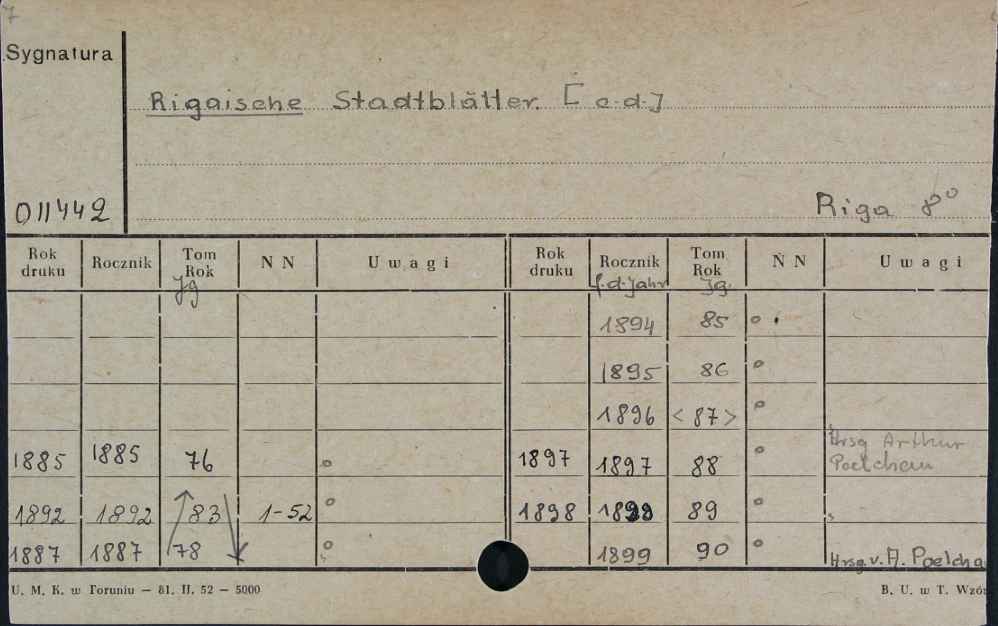 7
Sygnatura
Rigaische Stadtblätter. [c.d.]
011442
Riga 8°
Rok druku Rocznik Tom Rok Jg NN Uwagi Rok druku Rocznik f.d.Jahr Tom Rok Jg. NN Uwagi
1894 85 o
1895 86 o
1896 <87> o
1885 1885 76 o 1897 1897 88 o Hrsg Arthur Poelchau
1892 1892 83 1-52 o 1898 1898 89
1887 1887 78 o 1899 90 o Hrsg. v. A. Poelcha
U. M. K. w Toruniu – 81. II. 52 – 5000
B. U. w T. Wzór